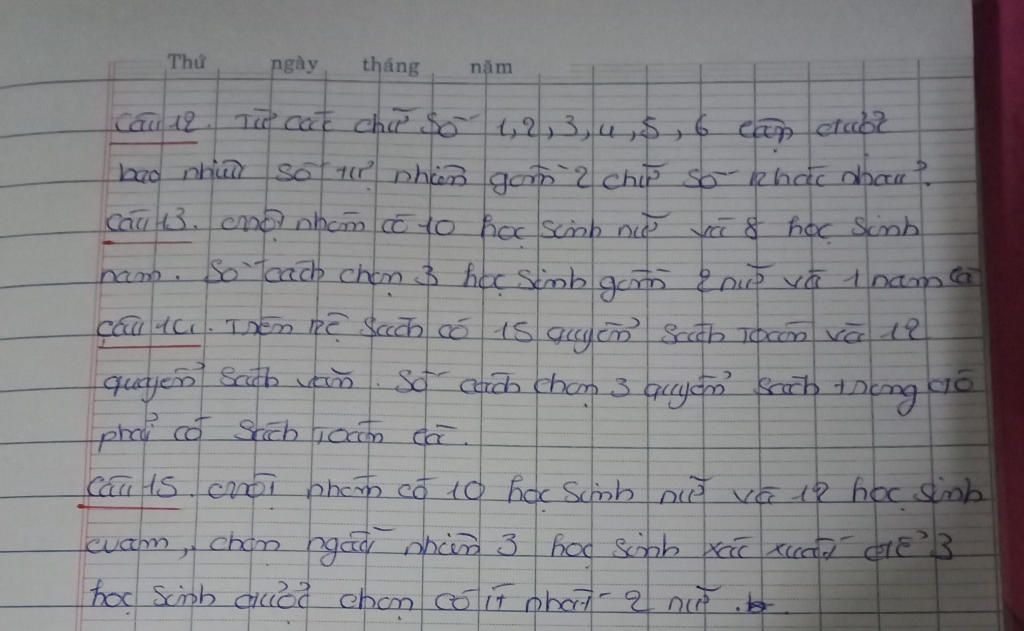 Thứ ngày tháng năm
Câu 12. Từ các chữ số 1, 2, 3, 4, 5, 6 lập được
bao nhiêu số tự nhiên gồm 2 chữ số khác nhau?
Câu 13. một nhóm có 10 học sinh nữ và 8 học sinh
nam. Số cách chọn 3 học sinh gồm 2 nữ và 1 nam là
Câu 14. Trên kệ sách có 15 quyển sách Toán và 12
quyển sách văn. Số cách chọn 3 quyển sách trong đó
phải có sách toán là.
Câu 15. một nhóm có 10 học sinh nữ và 12 học sinh
nam, chọn ngẫu nhiên 3 học sinh xác xuất để 3
học sinh được chọn có ít nhất 2 nữ.